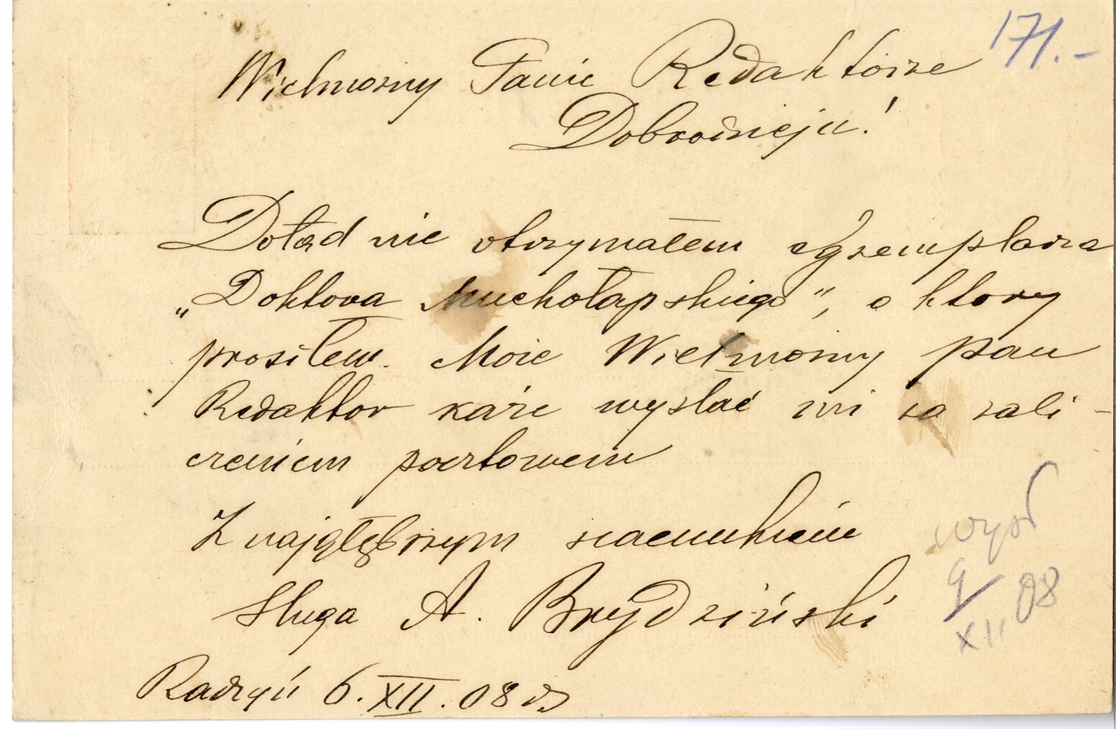 171.-
Wielmożny Panie Redaktorze
Dobrodzieju!
Dotąd nie otrzymałem egzemplarza
„Doktora Muchołapskiego”, o który
prosiłem. Może Wielmożny pan
Redaktor każe wysłać mi za zali-
czeniem pocztowem
Z najgłębszym szacunkiem
sługa A. Brydziński
Radzyń 6. XII. 08
wysł
9/XII. 08